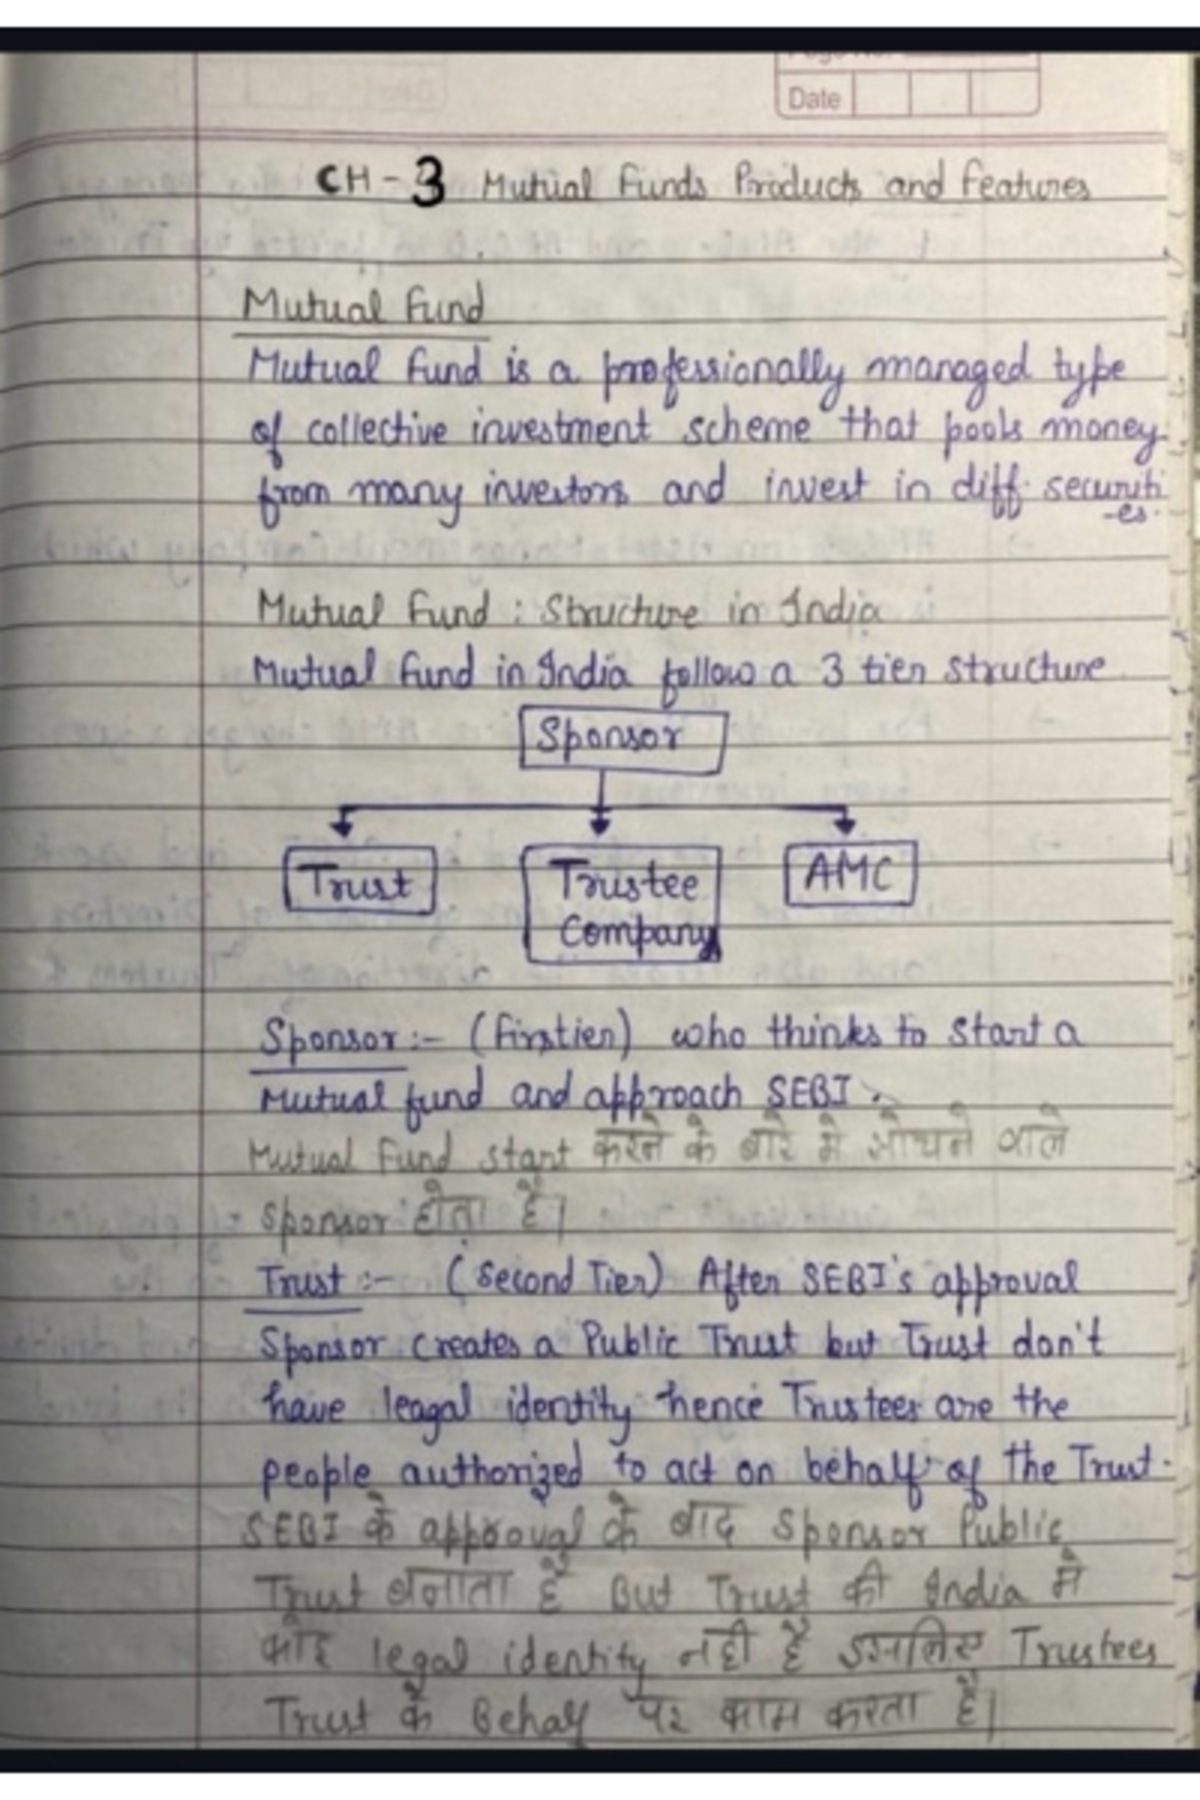 Date
CH - 3 Mutual Funds Products and Features
Mutual Fund
Mutual Fund is a professionally managed type
of collective investment scheme that pools money
from many investors and invest in diff. securiti
-es.
Mutual Fund : Structure in India
Mutual Fund in India follow a 3 tier structure
Sponsor
Trust
Trustee
Company
AMC
Sponsor :- (First tier) who thinks to start a
Mutual fund and approach SEBI.
Mutual Fund start करने के बारे मे सोचने वाले
Sponsor होता है।
Trust :- (Second Tier) After SEBI's approval
Sponsor creates a Public Trust but Trust don't
have leagal identity hence Trustees are the
people authorized to act on behalf of the Trust.
SEBI के approval के बाद Sponsor Public
Trust बनाता है But Trust की India मे
कोई legal identity नही है इसलिए Trustees
Trust के Behalf पर काम करता है।